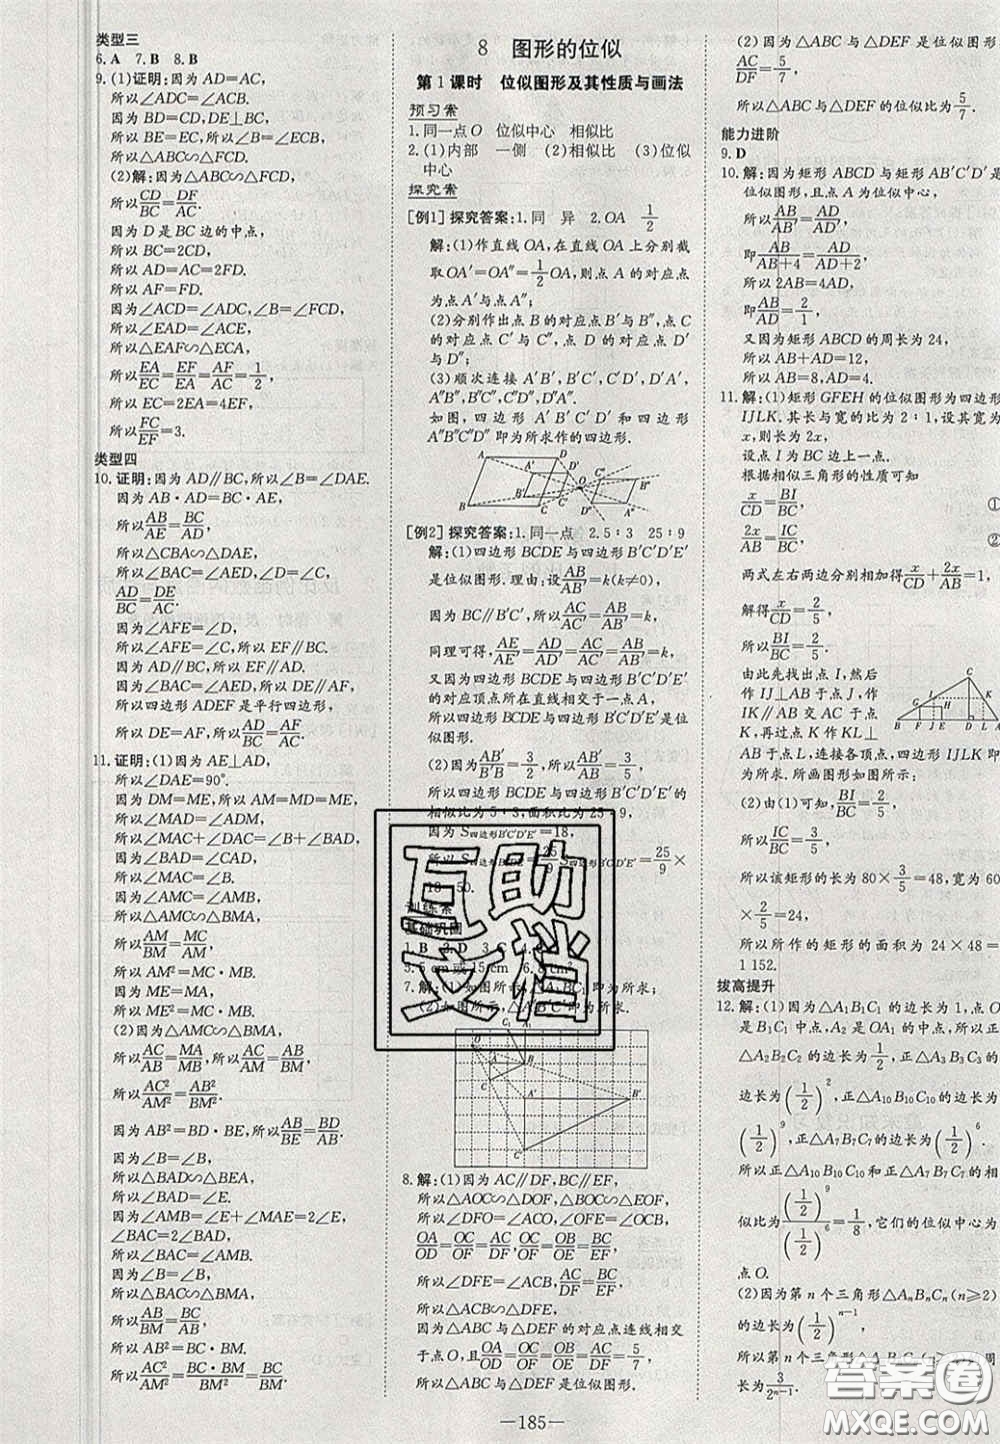 类型三
6.A 7.B 8.B
9.(1)证明:因为AD=AC,
所以∠ADC=∠ACB.
因为BD=CD,DE⊥BC,
所以BE=EC,所以∠B=∠ECB,
所以△ABC∽△FCD.
(2)解:因为△ABC∽△FCD,
所以CD/BC=DF/AC.
因为D是BC边的中点,
所以BC=2CD,
所以AD=AC=2FD.
所以AF=FD.
因为∠ACD=∠ADC,∠B=∠FCD,
所以∠EAD=∠ACE,
所以△EAF∽△ECA,
所以EA/EC=EF/EA=AF/AC=1/2,
所以EC=2EA=4EF,
所以FC/EF=3.
类型四
10.证明:因为AD∥BC,所以∠B=∠DAE.
因为AB·AD=BC·AE,
所以AB/AE=BC/AD,
所以△CBA∽△DAE,
所以∠BAC=∠AED,∠C=∠D,
AD/BC=DE/AC.
因为∠AFE=∠D,
所以∠AFE=∠C,所以EF∥BC.
因为AD∥BC,所以EF∥AD.
因为∠BAC=∠AED,所以DE∥AF,
所以四边形ADEF是平行四边形,
所以DE=AF,所以AD/BC=AF/AC.
11.证明:(1)因为AE⊥AD,
所以∠DAE=90°.
因为DM=ME,所以MA=MD=ME,
所以∠MAD=∠ADM,
所以∠MAC+∠DAC=∠B+∠BAD.
因为∠DAC=∠BAD,
所以∠MAC=∠B.
因为∠AMC=∠BMA,
所以△AMC∽△BMA,
所以AM/BM=MC/AM,
所以AM²=MC·MB.
所以MD²=MC·MB.
(2)因为△AMC∽△BMA,
所以AC/AB=MA/MB,所以AC/AM=AB/BM,
所以AC²/AM²=AB²/BM².
因为AB²=BE·BD,所以AB/BE=BD/AB.
因为∠B=∠B,
所以△BAD∽△BEA,
所以∠BAD=∠E.
因为∠AMB=∠E+∠MAE=2∠E,
∠BAC=2∠BAD,
所以∠BAC=∠AMB.
因为∠B=∠B,
所以△BAC∽△BMA,
所以AB/BM=BC/AB,
所以AB²=BC·BM.
所以AC²/AM²=AB²/BM²=BC·BM/BM²=BC/BM.
8 图形的位似
第1课时 位似图形及其性质与画法
预习案
1.同一点O 位似中心 相似比
2.(1)内部 一侧 (2)相似比 (3)位似
中心
探究案
[例1]探究答案:1.同 异 2.OA 1/2
解:(1)作直线OA,在直线OA上分别截
取OA′=OA″=1/2OA,则点A的对应点
为点A′与点A″;
(2)分别作出点B的对应点B′、B″,点C
的对应点C′、C″,点D的对应点D′
与D″;
(3)顺次连接A′B′,B′C′,C′D′,D′A′,
A″B″,B″C″,C″D″,D″A″.
如图,四边形A′B′C′D′和四边形
A″B″C″D″即为所求作的四边形.
A D A′ D′ B′ C′ O B C C″ D″ B″ A″
[例2]探究答案:1.同一点 2.5∶3 25∶9
解:(1)四边形BCDE与四边形B′C′D′E′
是位似图形.理由:设AB/AB′=k(k≠0),
因为BC∥B′C′,所以AC/AC′=AB/AB′=k,
同理可得,AE/AE′=AD/AD′=AB/AB′=k,
又因为四边形BCDE与四边形B′C′D′E′
的对应顶点所在直线相交于一点A,
所以四边形BCDE与四边形B′C′D′E′是位
似图形.
(2)因为AB′/B′B=3/2,所以AB/AB′=5/3,
所以四边形BCDE与四边形B′C′D′E′的
相似比为5∶3,面积比为25∶9,
因为S四边形B′C′D′E′=18,
所以S四边形BCDE=25/9S四边形B′C′D′E′=25/9×
18=50.
训练案
基础巩固
1.B 2.D 3.C
5.5 cm或15 cm 6.8 cm²
7.解:(1)如图所示,即为所求;
(2)如图所示,即为所求.
C₁ A₁ O A B₁ B C A′ B′ C′
8.解:(1)因为AC∥DF,BC∥EF,
所以△AOC∽△DOF,△BOC∽△EOF,
所以∠DFO=∠ACO,∠OFE=∠OCB,
OA/OD=OC/OF=AC/DF,OC/OF=OB/OE=BC/EF,
所以∠DFE=∠ACB,AC/DF=BC/EF,
所以△ACB∽△DFE.
因为△ABC与△DEF的对应点连线相交
于点O,OA/OD=OB/OE=OC/OF=AC/DF=BC/EF,
所以△ABC与△DEF是位似图形.
(2)因为△ABC与△DEF是位似图形,
AC/DF=5/7,
所以△ABC与△DEF的位似比为5/7.
能力进阶
9.D
10.解:因为矩形ABCD与矩形AB′C′D′是
位似图形,且点A为位似中心,
所以AB/AB′=AD/AD′,
即AB/(AB+4)=AD/(AD+2),
所以2AB=4AD,
即AB/AD=2/1.
又因为矩形ABCD的周长为24,
所以AB+AD=12,
所以AB=8,AD=4.
11.解:(1)矩形GFEH的位似图形为四边形
IJLK.其长与宽的比为2∶1,设其宽为
x,则长为2x,
设点I为位似中心.
根据相似三角形的性质可知
x/CD=BI/BC, ①
2x/AB=IC/BC, ②
两式左右两边分别相加得x/CD+2x/AB=1,
解得x/CD=2/5,
所以BI/BC=2/5.
由此先找出点I,然后
作IJ⊥AB于点J,作
IK∥AB交AC于点
K,再过点K作KL⊥
AB于点L,连接各点,四边形IJLK即
为所求.画图如图所示:
C I K G H B F J E D L A
(2)由(1)可知,BI/BC=2/5,
所以IC/BC=3/5,
所以该矩形的长为80×3/5=48,宽为60
×2/5=24,
所以所作的矩形的面积为24×48=
1 152.
拔高提升
12.解:(1)因为△A₁B₁C₁的边长为1,点O
是B₁C₁中点,A₂是OA₁的中点,所以正
△A₂B₂C₂的边长为1/2,正△A₃B₃C₃的
边长为(1/2)²,正△A₁₀B₁₀C₁₀的边长为
(1/2)⁹,正△A₇B₇C₇的边长为(1/2)⁶,
所以正△A₁₀B₁₀C₁₀和正△A₇B₇C₇的位
似比为(1/2)⁹/(1/2)⁶=1/8,它们的位似中心为
点O.
(2)因为第n个三角形AₙBₙCₙ(n≥2)
的边长为(1/2)ⁿ⁻¹,
所以第n个三角形AₙBₙCₙ
为3/2ⁿ⁻¹
—185—
互助文档
答案圈
MXQE.COM